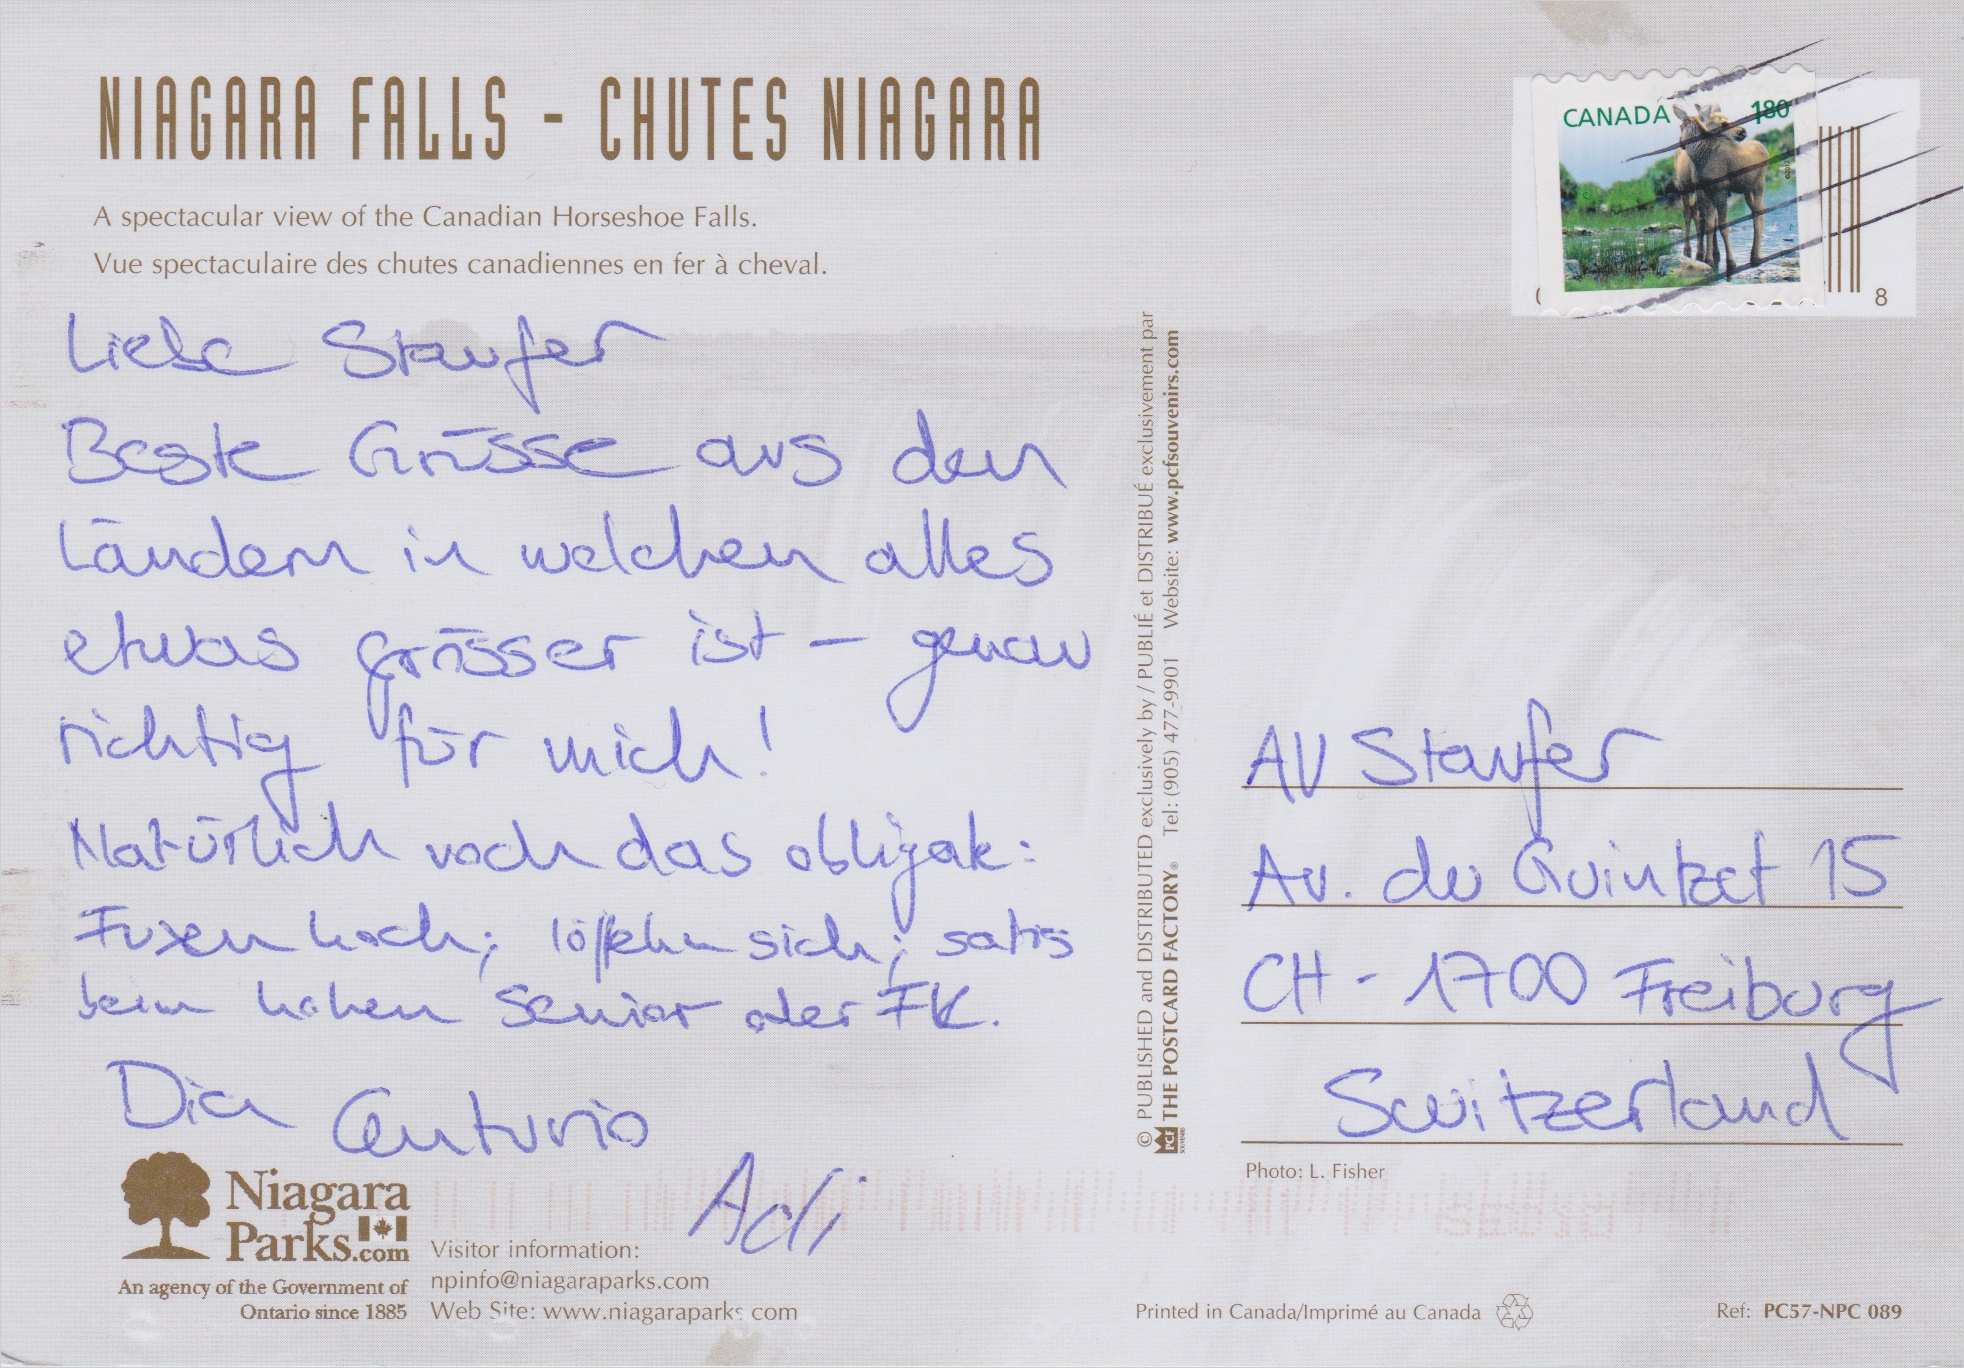 NIAGARA FALLS - CHUTES NIAGARA
A spectacular view of the Canadian Horseshoe Falls.
Vue spectaculaire des chutes canadiennes en fer à cheval.
Liebe Staufer
Beste Grüsse aus den
Ländern in welchen alles
etwas grösser ist – genau
richtig für mich!
Natürlich noch das obligak:
Fuxen hoch; löffeln sich; satis
beim hohen Senior oder FK.
Dia
Centurio
Adi
Niagara
Parks.com
An agency of the Government of
Ontario since 1885
Visitor information:
npinfo@niagaraparks.com
Web Site: www.niagaraparks.com
© PUBLISHED and DISTRIBUTED exclusively by / PUBLIÉ et DISTRIBUÉ exclusivement par
PCF
SOUVENIRS
THE POSTCARD FACTORY® Tel: (905) 477-9901 Website: www.pcfsouvenirs.com
CANADA 180
0 8
AV Staufer
Av. du Guintzet 15
CH - 1700 Freiburg
Switzerland
Photo: L. Fisher
Printed in Canada/Imprimé au Canada
Ref: PC57-NPC 089